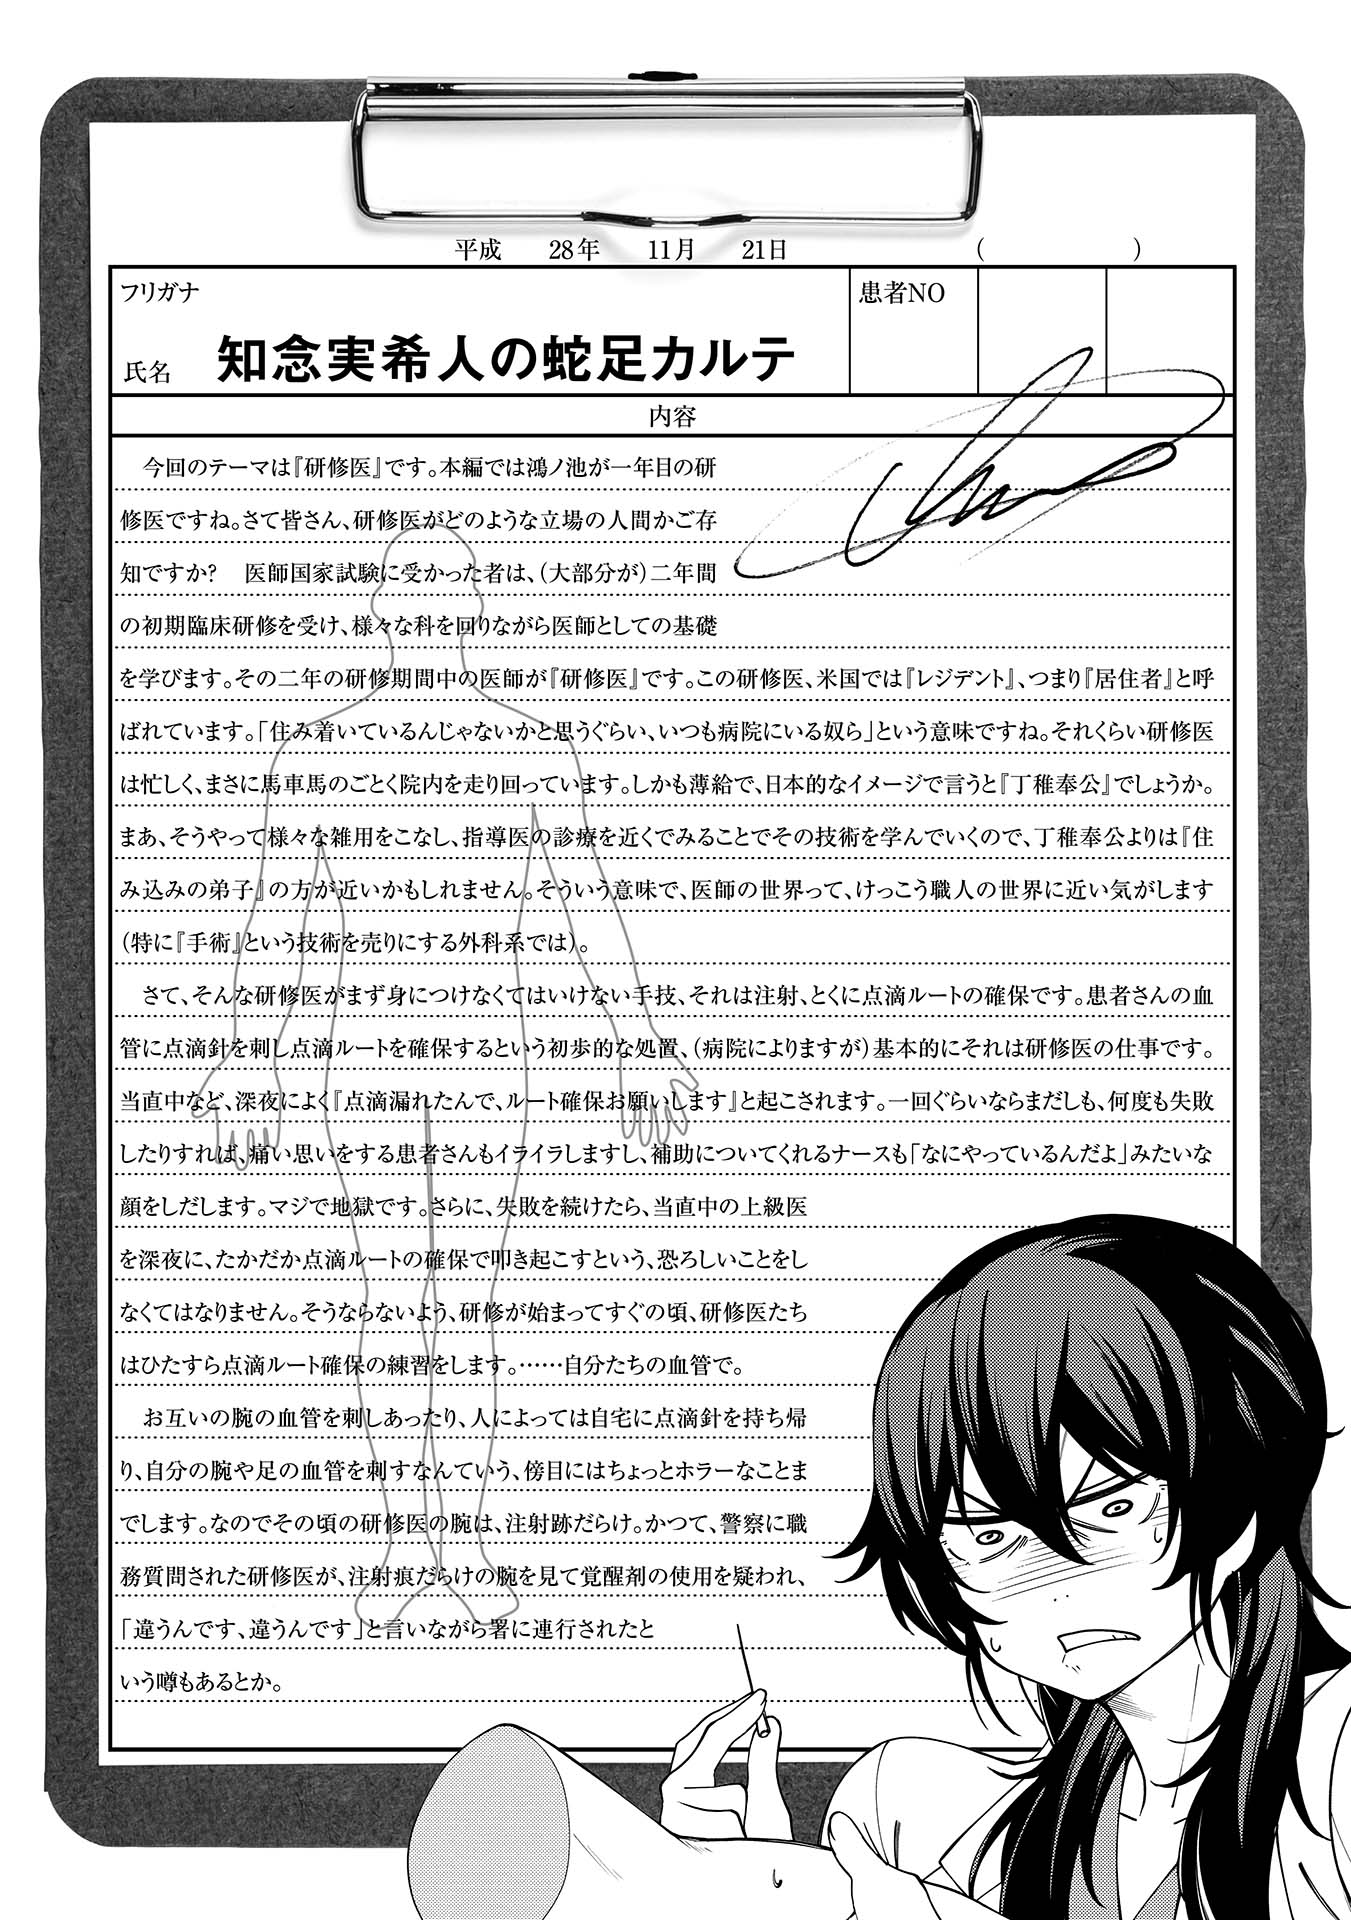 平成 28年 11月 21日 ( )
フリガナ
患者NO
氏名 知念実希人の蛇足カルテ
内容
今回のテーマは『研修医』です。本編では鴻ノ池が一年目の研
修医ですね。さて皆さん、研修医がどのような立場の人間かご存
知ですか? 医師国家試験に受かった者は、(大部分が)二年間
の初期臨床研修を受け、様々な科を回りながら医師としての基礎
を学びます。その二年の研修期間中の医師が『研修医』です。この研修医、米国では『レジデント』、つまり『居住者』と呼
ばれています。「住み着いているんじゃないかと思うぐらい、いつも病院にいる奴ら」という意味ですね。それくらい研修医
は忙しく、まさに馬車馬のごとく院内を走り回っています。しかも薄給で、日本的なイメージで言うと『丁稚奉公』でしょうか。
まあ、そうやって様々な雑用をこなし、指導医の診療を近くでみることでその技術を学んでいくので、丁稚奉公よりは『住
み込みの弟子』の方が近いかもしれません。そういう意味で、医師の世界って、けっこう職人の世界に近い気がします
(特に『手術』という技術を売りにする外科系では)。
さて、そんな研修医がまず身につけなくてはいけない手技、それは注射、とくに点滴ルートの確保です。患者さんの血
管に点滴針を刺し点滴ルートを確保するという初歩的な処置、(病院によりますが)基本的にそれは研修医の仕事です。
当直中など、深夜によく『点滴漏れたんで、ルート確保お願いします』と起こされます。一回ぐらいならまだしも、何度も失敗
したりすれば、痛い思いをする患者さんもイライラしますし、補助についてくれるナースも「なにやっているんだよ」みたいな
顔をしだします。マジで地獄です。さらに、失敗を続けたら、当直中の上級医
を深夜に、たかだか点滴ルートの確保で叩き起こすという、恐ろしいことをし
なくてはなりません。そうならないよう、研修が始まってすぐの頃、研修医たち
はひたすら点滴ルート確保の練習をします。……自分たちの血管で。
お互いの腕の血管を刺しあったり、人によっては自宅に点滴針を持ち帰
り、自分の腕や足の血管を刺すなんていう、傍目にはちょっとホラーなことま
でします。なのでその頃の研修医の腕は、注射跡だらけ。かつて、警察に職
務質問された研修医が、注射痕だらけの腕を見て覚醒剤の使用を疑われ、
「違うんです、違うんです」と言いながら署に連行されたと
いう噂もあるとか。